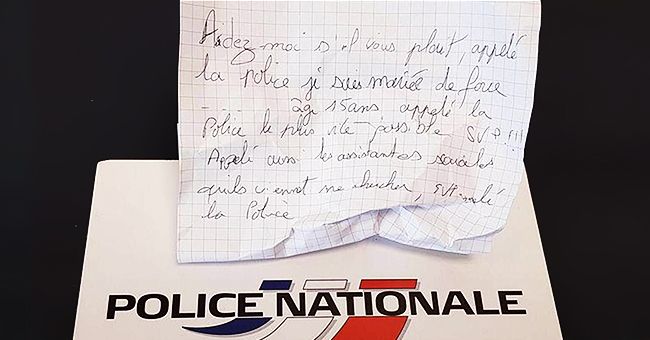 Aidez moi s'il vous plait, appelé
la police je suis mariée de force
âgé 15 ans appelé la
Police le plus vite possible SVP !!!
Appelé aussi les assistantes sociales
qu'ils viennent me chercher, SVP
la Police
POLICE NATIONALE